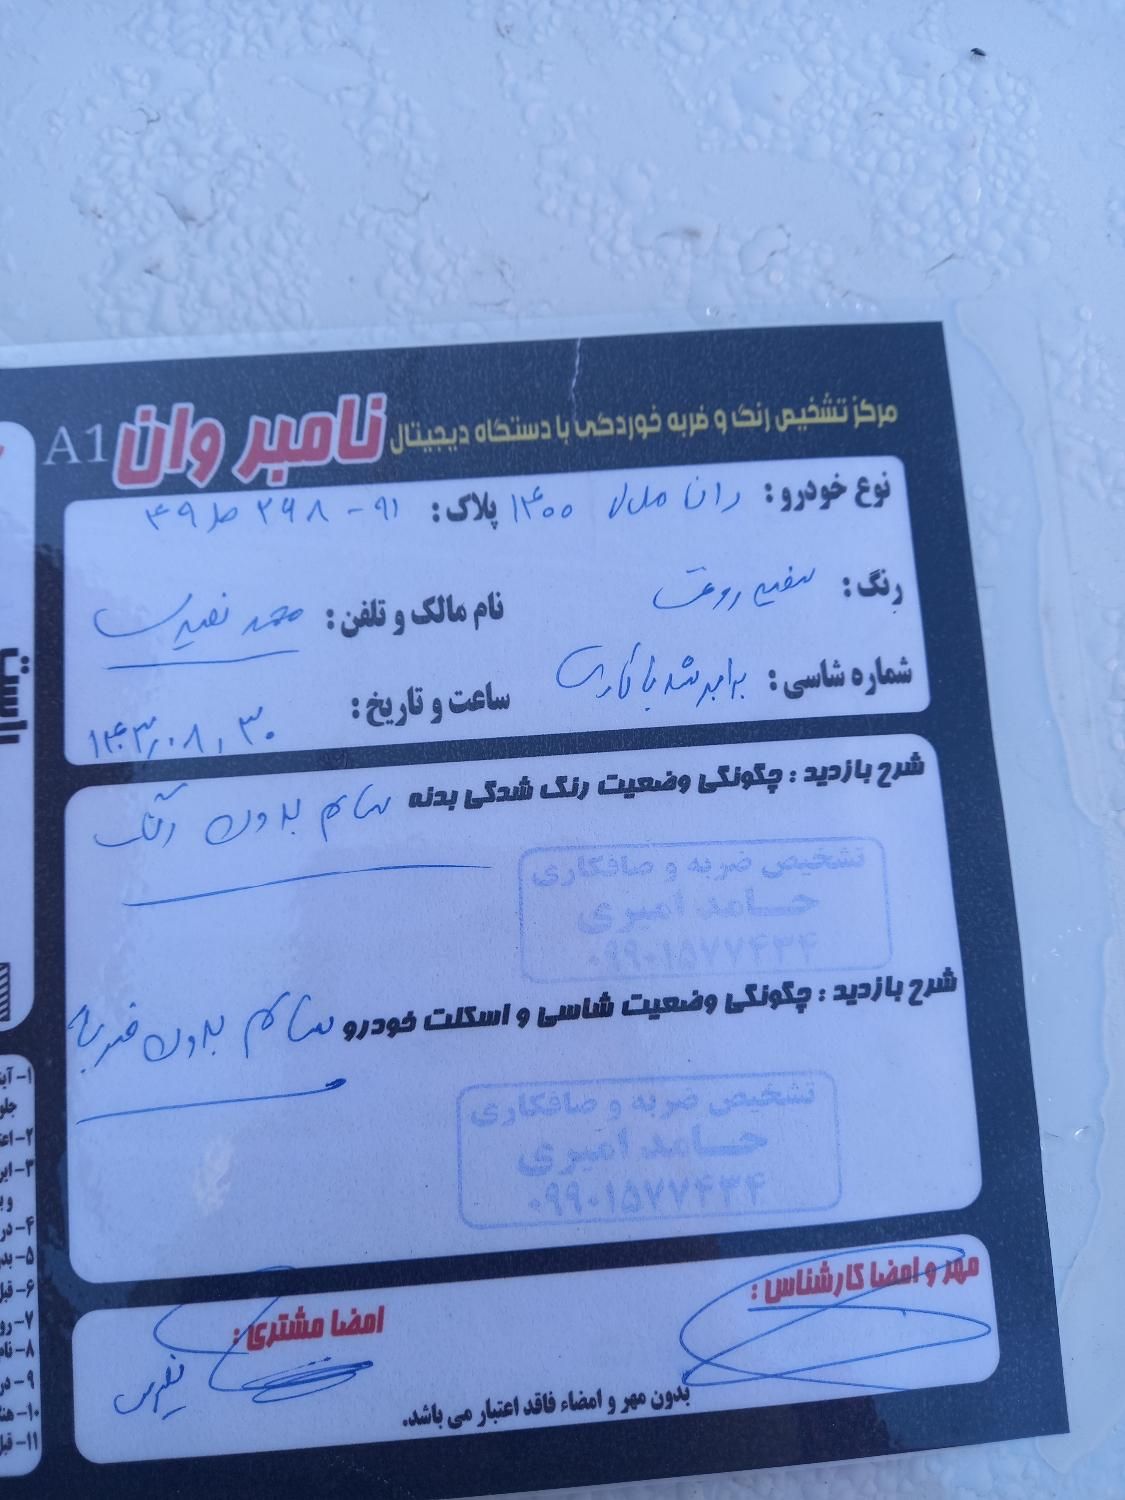 مرکز تشخیص رنگ و ضربه خوردگی با دستگاه دیجیتال نامبر وان A1
نوع خودرو: رانا مدل ۱۴۰۰ پلاک: ۹۱ - ۲۶۸ ط ۴۹
رنگ: سفید روغنی
نام مالک و تلفن: محمد نصیری
شماره شاسی: برابر شد با کارت
ساعت و تاریخ: ۱۴۰۳٫۰۸٫۳۰
شرح بازدید : چگونگی وضعیت رنگ شدگی بدنه سالم بدون رنگ
تشخیص ضربه و صافکاری
حامد امیری
۰۹۹۰۱۵۷۷۴۳۴
شرح بازدید : چگونگی وضعیت شاسی و اسکلت خودرو سالم بدون ضربه
تشخیص ضربه و صافکاری
حامد امیری
۰۹۹۰۱۵۷۷۴۳۴
مهر و امضا کارشناس :
امضا مشتری :
نصیری
بدون مهر و امضاء فاقد اعتبار می باشد.
راست
۱- آینه
جلو
۲-
۳- این
۴- در
۵-
۶- قبل
۷- رو
۸- نام
۹- در
۱۰-
۱۱- قبل